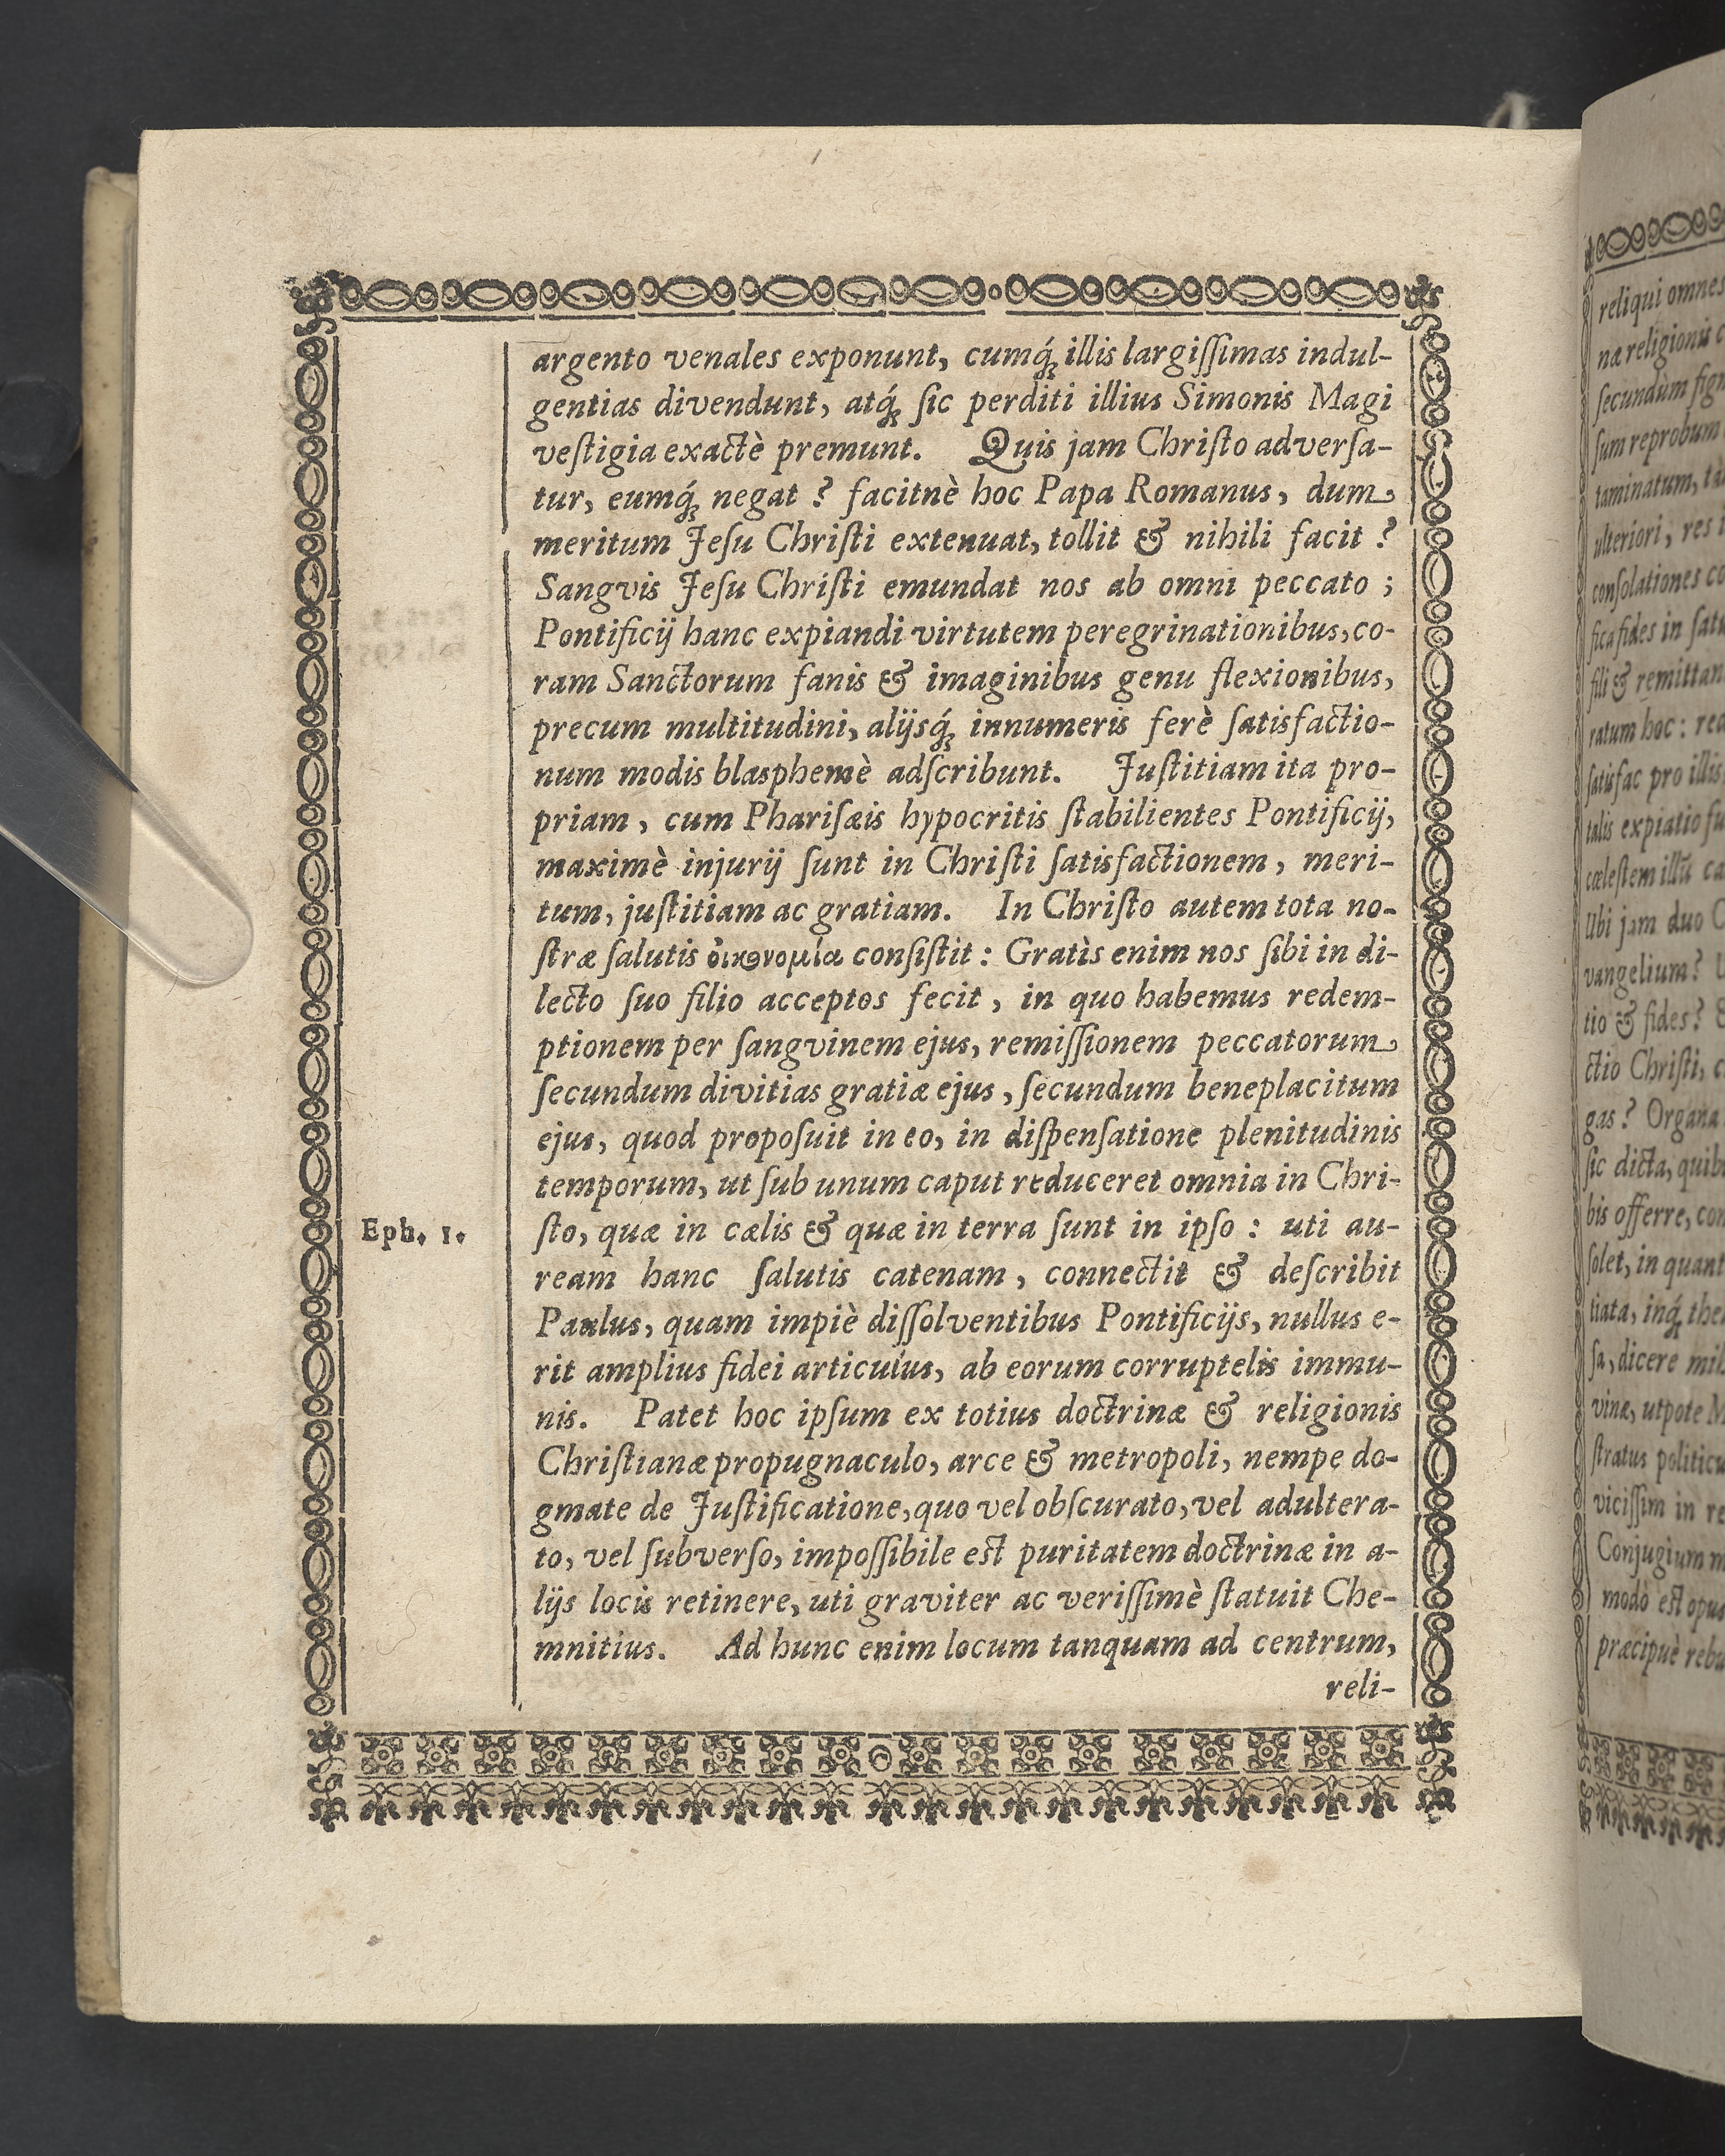 argento venales exponunt, cumq́ꝫ illis largiſſimas indul-
gentias divendunt, atq́ꝫ ſic perditi illius Simonis Magi
veſtigia exactè premunt. Quis jam Chriſto adverſa-
tur, eumq́ꝫ negat ? facitnè hoc Papa Romanus, dum
meritum Jeſu Chriſti extenuat, tollit & nihili facit ?
Sangvis Jeſu Chriſti emundat nos ab omni peccato ;
Pontificij hanc expiandi virtutem peregrinationibus, co-
ram Sanctorum fanis & imaginibus genu flexionibus,
precum multitudini, alijsq́ꝫ innumeris ferè ſatisfactio-
num modis blasphemè adſcribunt. Juſtitiam ita pro-
priam, cum Phariſæis hypocritis ſtabilientes Pontificij,
maximè injurij ſunt in Chriſti ſatisfactionem, meri-
tum, juſtitiam ac gratiam. In Chriſto autem tota no-
ſtræ ſalutis ὀικονομία conſiſtit : Gratìs enim nos ſibi in di-
lecto ſuo filio acceptos fecit, in quo habemus redem-
ptionem per ſangvinem ejus, remiſſionem peccatorum
ſecundum divitias gratiæ ejus, ſecundum beneplacitum
ejus, quod propoſuit in eo, in diſpenſatione plenitudinis
temporum, ut ſub unum caput reduceret omnia in Chri-
Eph. 1. ſto, quæ in cælis & quæ in terra ſunt in ipſo : uti au-
ream hanc ſalutis catenam, connectit & deſcribit
Paulus, quam impiè diſſolventibus Pontificijs, nullus e-
rit amplius fidei articulus, ab eorum corruptelis immu-
nis. Patet hoc ipſum ex totius doctrinæ & religionis
Chriſtianæ propugnaculo, arce & metropoli, nempe do-
gmate de Juſtificatione, quo vel obſcurato, vel adultera-
to, vel ſubverſo, impoſſibile eſt puritatem doctrinæ in a-
lijs locis retinere, uti graviter ac veriſſimè ſtatuit Che-
mnitius. Ad hunc enim locum tanquam ad centrum,
reli-
reliqui omnes
næ religionis
ſecundùm
ſum reprobum
taminatum,
ulteriori, res
conſolationes
fica fides in
fili & remittan
ratum hoc :
ſatisfac pro illis
talis expiatio
cæleſtem illũ
Ubi jam duo
vangelium ?
tio & fides ?
ctio Chriſti,
gas ? Organa
ſic dicta,
bis offerre,
ſolet, in
tiata, inq́ꝫ
ſa, dicere
vinæ, utpote
ſtratus
viciſſim in
Conjugium
modò eſt opus
præcipuè